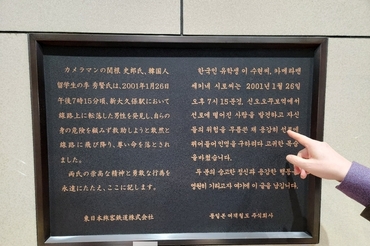 カメラマンの関根 史郎氏、韓国人
留学生の李 秀賢氏は、2001年1月26日
午後7時15分頃、新大久保駅において
線路上に転落した男性を発見し、自らの
身の危険を顧みず救助しようと敢然と
線路に飛び降り、尊い命を落とされ
ました。
両氏の崇高な精神と勇敢な行為を
永遠にたたえ、ここに記します。
東日本旅客鉄道株式会社
한국인 유학생 이 수현씨, 카메라맨
세키네 시로씨는 2001년 1월 26일
오후 7시 15분경, 신오오쿠보역에서
선로에 떨어진 사람을 발견하고 자신
들의 위험을 무릅쓴 채 용감히
뛰어들어 인명을 구하려다 고귀한 목숨
을 바쳤습니다.
두 분의 숭고한 정신과 용감한 행동을
영원히 기리고자 여기에 이 글을 남깁니다.
동일본 여객철도 주식회사